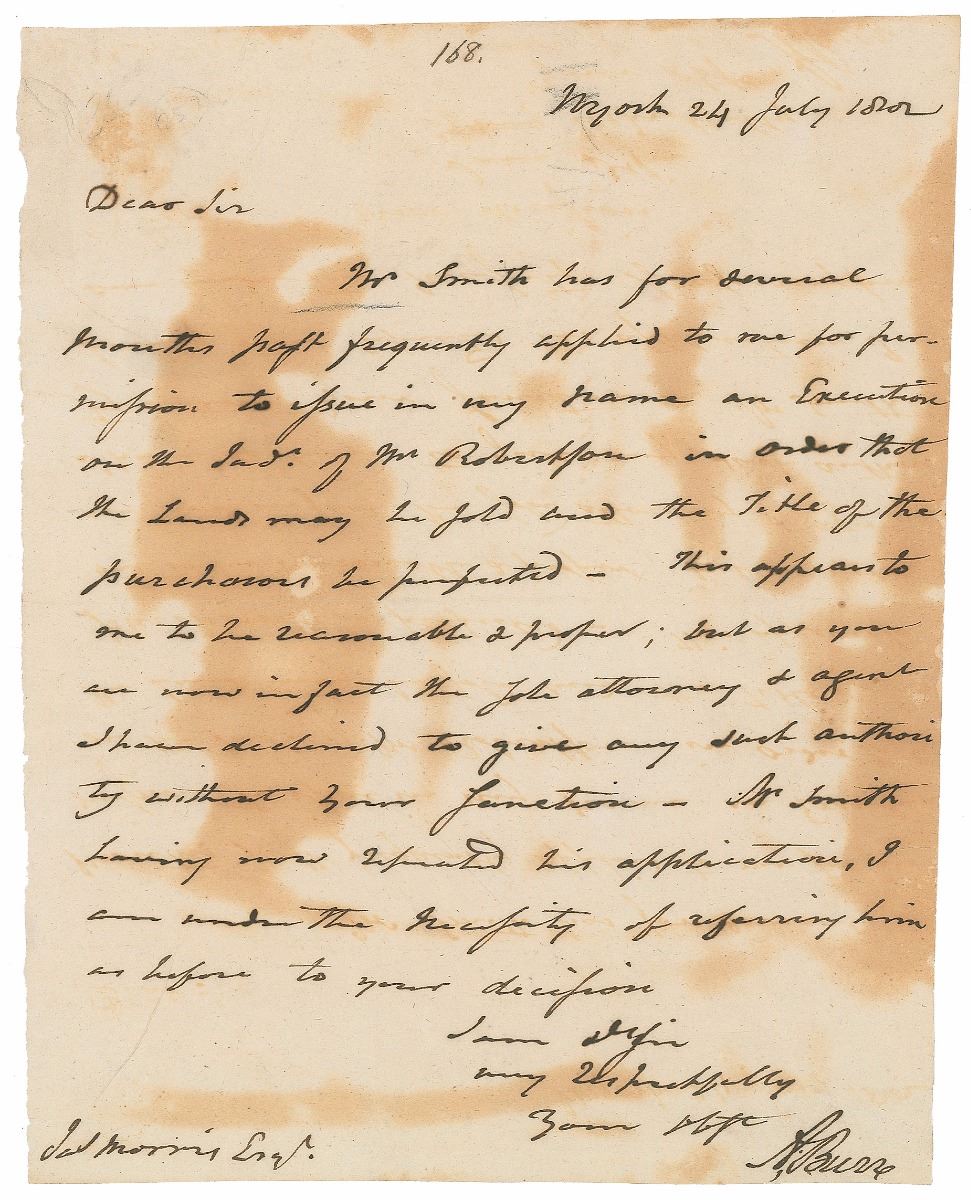 168.
NYork 24 July 1802
Dear Sir
Mr Smith has for several
months past frequently applied to me for per-
mission to issue in my name an Execution
on the Jud.t of Mr Robertson in order that
the Lands may be sold and the Title of the
purchasors be perfected — This appears to
me to be reasonable & proper; but as you
are now in fact the sole attorney & agent
I have declined to give any such authori
ty without your Sanction — Mr Smith
having now repeated his application, I
am under the Necessity of referring him
as before to your decision
I am D Sir
very Respectfully
Your Obt St
A, Burr
Jas Morris Esqr.